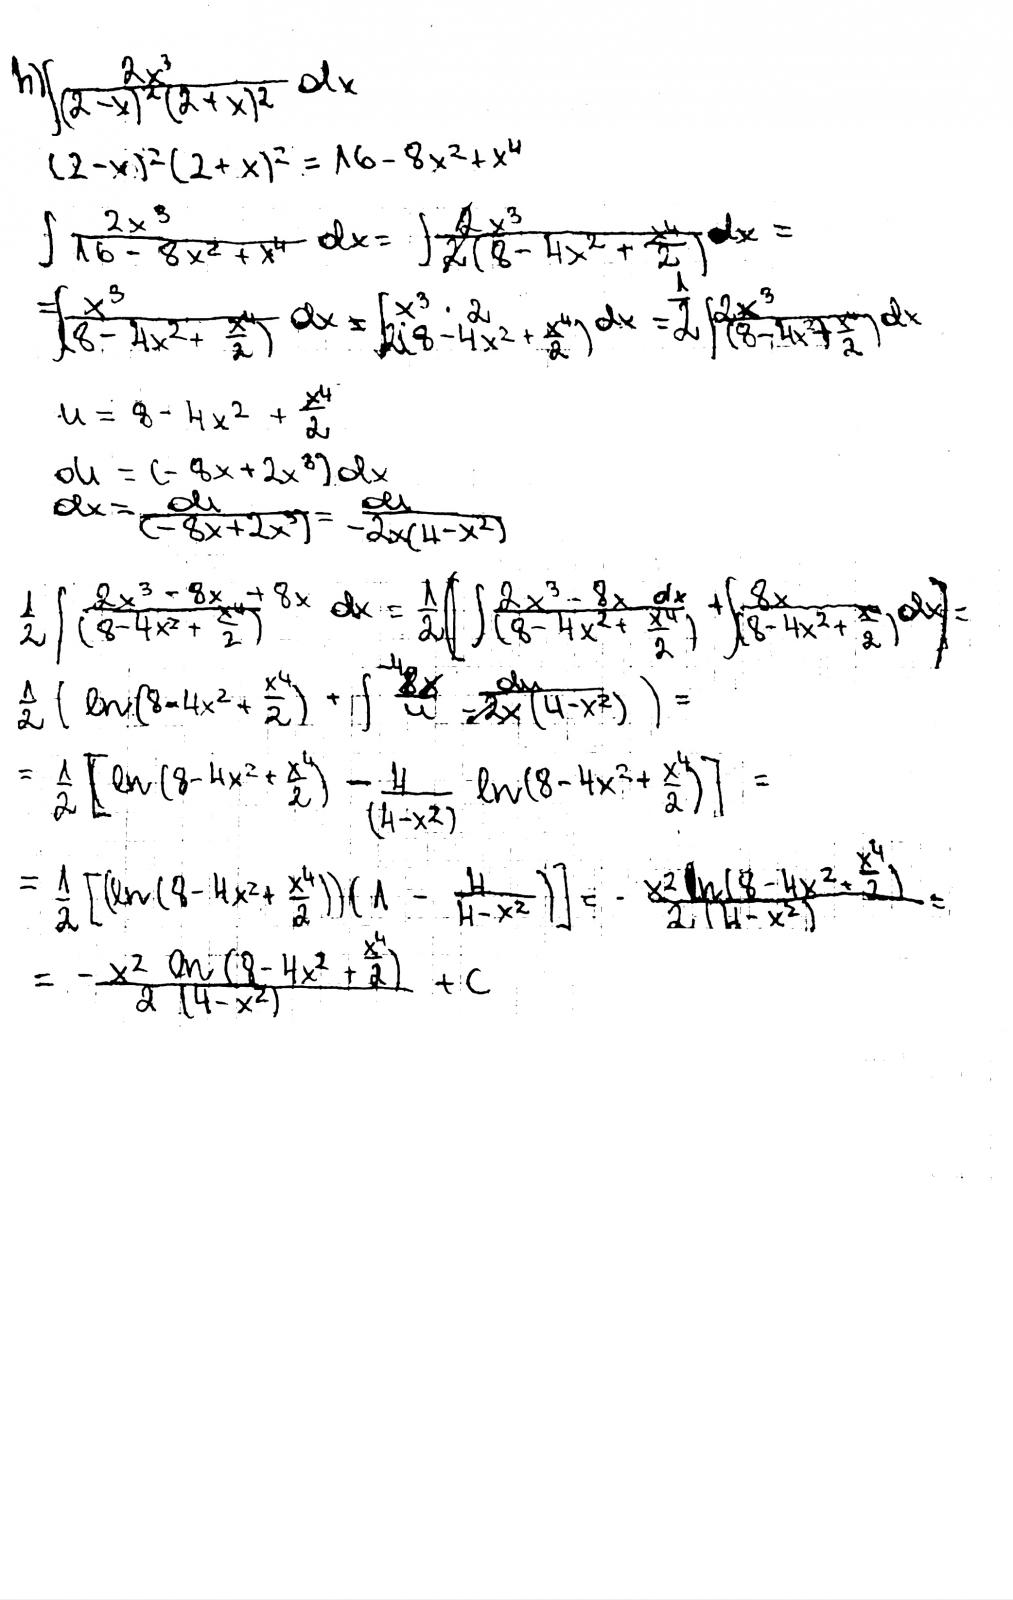 h) ∫ 2x³/((2-x)²(2+x)²) dx
(2-x)²(2+x)² = 16 - 8x² + x⁴
∫ 2x³/(16 - 8x² + x⁴) dx = ∫ 2x³/(2(8 - 4x² + x⁴/2)) dx =
= ∫ x³/(8 - 4x² + x⁴/2) dx = ∫ x³·2/(2(8 - 4x² + x⁴/2)) dx = 1/2 ∫ 2x³/(8 - 4x² + x⁴/2) dx
u = 8 - 4x² + x⁴/2
du = (-8x + 2x³) dx
dx = du/(-8x + 2x³) = du/(-2x(4-x²))
1/2 ∫ (2x³ - 8x + 8x)/(8 - 4x² + x⁴/2) dx = 1/2 [∫ (2x³ - 8x dx)/(8 - 4x² + x⁴/2) + ∫ 8x/(8 - 4x² + x⁴/2) dx] =
1/2 (ln(8 - 4x² + x⁴/2) + ∫ -4 8x/u du/(-2x(4-x²))) =
= 1/2 [ln(8 - 4x² + x⁴/2) - 4/(4-x²) ln(8 - 4x² + x⁴/2)] =
= 1/2 [(ln(8 - 4x² + x⁴/2))(1 - 4/(4-x²))] = - x² ln(8 - 4x² + x⁴/2)/(2(4-x²)) =
= - x² ln(8 - 4x² + x⁴/2)/(2(4-x²)) + C